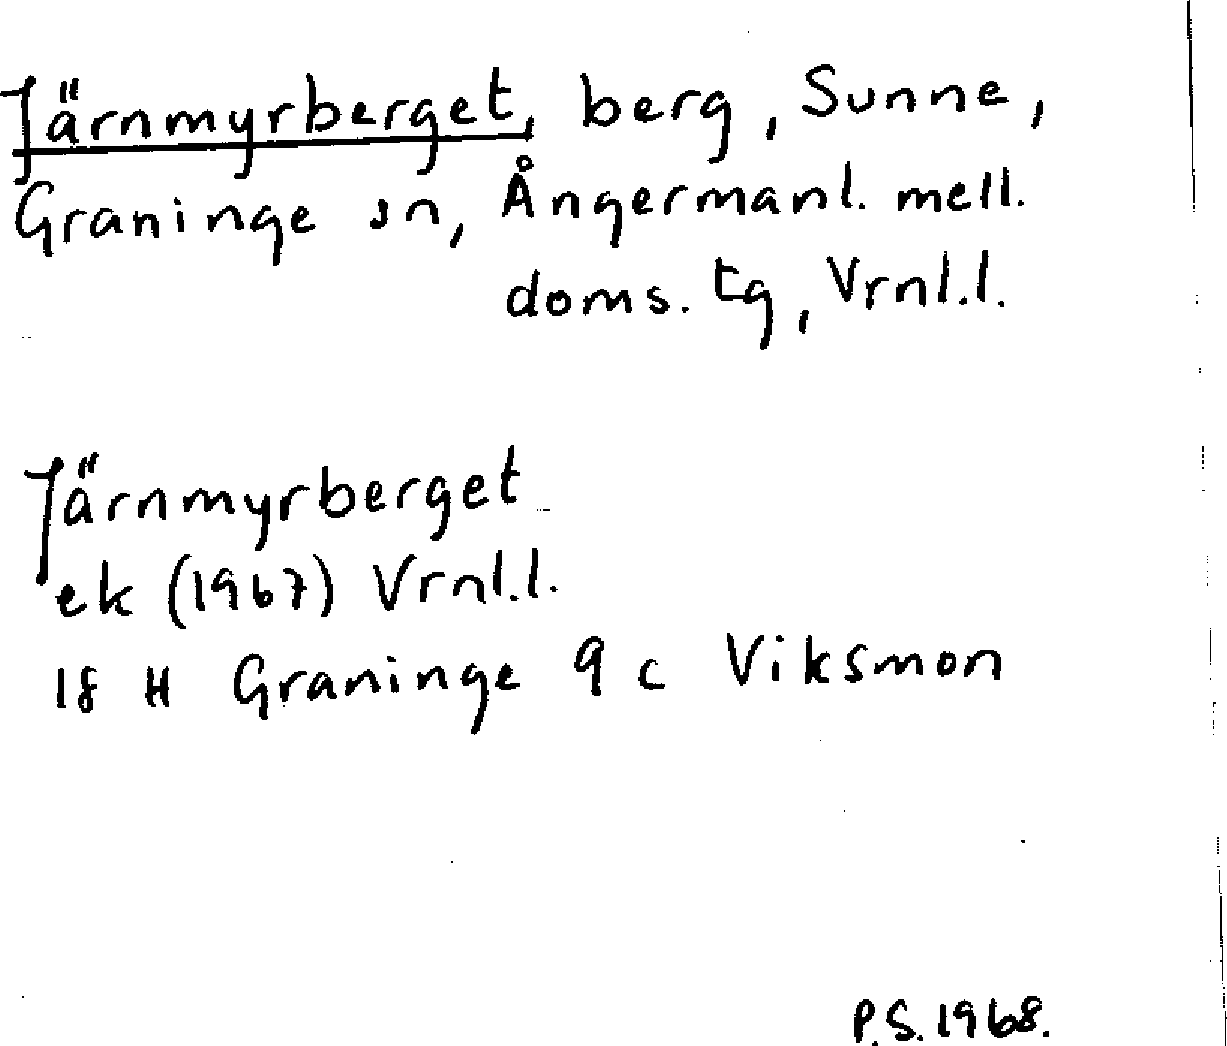 Järnmyrberget, berg, Sunne,
Graninge sn, Ångermanl. mell.
doms. tg, Vrnl.l.
Järnmyrberget
ek (1967) Vrnl.l.
18 H Graninge 9 c Viksmon
P.S. 1968.